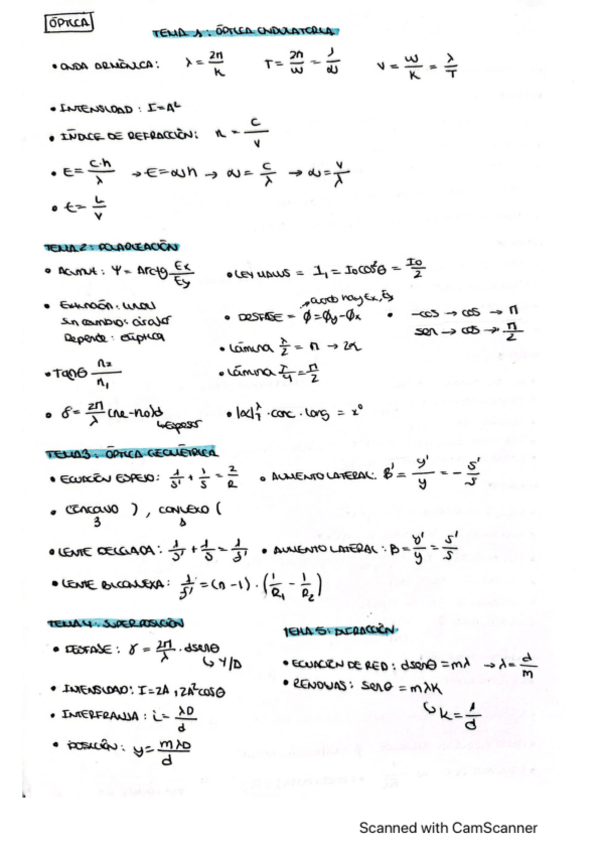 ÓPTICA
TEMA 1: ÓPTICA ONDULATORIA
• ONDA ARMÓNICA: λ = 2π/K T = 2π/W = 1/ν V = W/K = λ/T
• INTENSIDAD: I = A²
• ÍNDICE DE REFRACCIÓN: n = c/v
• E = c·h/λ → E = νh → ν = c/λ → ν = v/λ
• t = L/v
TEMA 2: POLARIZACIÓN
• Acimut: Ψ = Arctg Ex/Ey
• LEY MALUS = I₁ = I₀cos²θ = I₀/2
• Extinción: lineal
Sin cambio: circular
Depende: elíptica
→ cuando hay Ex, Ey
• DESFASE = φ = φy - φx
• -cos → cos → π
sen → cos → π/2
• Lámina λ/2 = π → 2α
• Tanθ n₂/n₁
• Lámina λ/4 = π/2
• δ = 2π/λ (ne - no)d
↳ Espesor
• |α|λT · conc · long = x°
TEMA 3: ÓPTICA GEOMÉTRICA
• ECUACIÓN ESPEJO: 1/s' + 1/s = 2/R
• AUMENTO LATERAL: β' = y'/y = - s'/s
• CÓNCAVO ), CONVEXO (
• LENTE DELGADA: 1/s' + 1/s = 1/f'
• AUMENTO LATERAL: β = y'/y = s'/s
• LENTE BICONVEXA: 1/f' = (n - 1) · (1/R₁ - 1/R₂)
TEMA 4: SUPERPOSICIÓN
• DESFASE: γ = 2π/λ · dsenθ
↳ Y/D
• INTENSIDAD: I = 2A, 2A²cosθ
• INTERFRANJA: i = λD/d
• POSICIÓN: y = mλD/d
TEMA 5: DIFRACCIÓN
• ECUACIÓN DE RED: dsenθ = mλ → λ = d/m
• RENDIJAS: senθ = mλK
↳ K = 1/d
Scanned with CamScanner